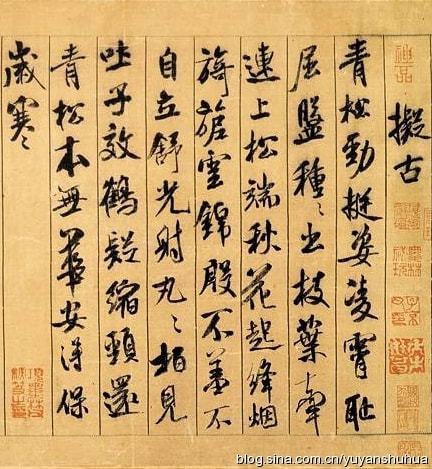 神品
擬古
青松勁挺姿凌霄恥
屈盤種〻出枝葉牽
連上松端秋花起絳烟
旖旎雲錦殷不羞不
自立舒光射丸〻柏見
吐子效鶴疑縮頸還
青松本無華安得保
歲寒
blog.sina.com.cn/yuyanshuhua